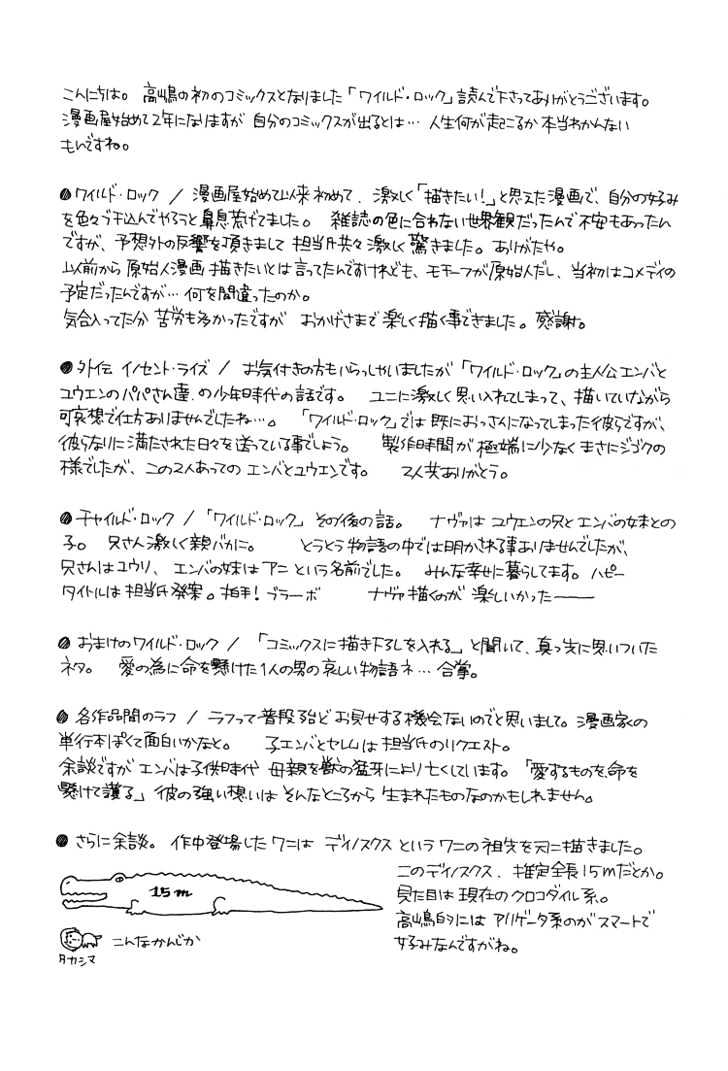 こんにちは。 高嶋の初のコミックスとなりました「ワイルド・ロック」読んで下さってありがとうございます。
漫画屋始めて2年になりますが 自分のコミックスが出るとは… 人生何が起こるか本当わかんない
もんですね。
●ワイルド・ロック / 漫画屋始めて以来初めて、激しく「描きたい!」と思えた漫画で、自分の好み
を色々ブチ込んでやろうと鼻息荒げてました。 雑誌の色に合わない世界観だったんで不安もあったん
ですが、予想外の反響を頂きまして 担当氏共々激しく驚きました。ありがたや。
以前から原始人漫画描きたいとは言ってたんですけれども、モチーフが原始人だし、当初はコメディの
予定だったんですが… 何を間違ったのか。
気合入ってた分 苦労も多かったですが おかげさまで楽しく描く事できました。感謝。
●外伝 イノセント・ライズ / お気付きの方もいらっしゃいましたが「ワイルド・ロック」の主人公エンバと
ユウエンのパパさん達の少年時代の話です。 ユニに激しく思い入れてしまって、描いていながら
可哀想で仕方ありませんでしたね…。 「ワイルド・ロック」では既におっさんになってしまった彼らですが、
彼らなりに満たされた日々を送っている事でしょう。 製作時間が極端に少なくまさにジゴクの
様でしたが、この2人あってのエンバとユウエンです。 2人共ありがとう。
●チャイルド・ロック / 「ワイルド・ロック」その後の話。 ナヴァはユウエンの兄とエンバの妹との
子。 兄さん激しく親バカに。 とうとう物語の中では明かされる事ありませんでしたが、
兄さんはユウリ、エンバの妹はアニという名前でした。 みんな幸せに暮らしてます。ハピー
タイトルは担当氏発案。拍手!ブラーボ ナヴァ描くのが楽しいかった――
●おまけのワイルド・ロック / 「コミックスに描き下ろしを入れる」と聞いて、真っ先に思いついた
ネタ。 愛の為に命を懸けた1人の男の哀しい物語ネ… 合掌。
●各作品間のラフ / ラフって普段殆どお見せする機会ないのでと思いまして。漫画家の
単行本ぽくて面白いかなと。 子エンバとセレムは担当氏のリクエスト。
余談ですがエンバは子供時代 母親を獣の猛牙により亡くしています。「愛するものを命を
懸けて護る」彼の強い想いはそんなところから生まれたものなのかもしれません。
●さらに余談。 作中登場したワニは ディノスクスというワニの祖先を元に描きました。
このディノスクス、推定全長15mだとか。
見た目は現在のクロコダイル系。
高嶋的にはアリゲータ系のがスマートで
好みなんですがね。
15m
こんなかんじか
タカシマ